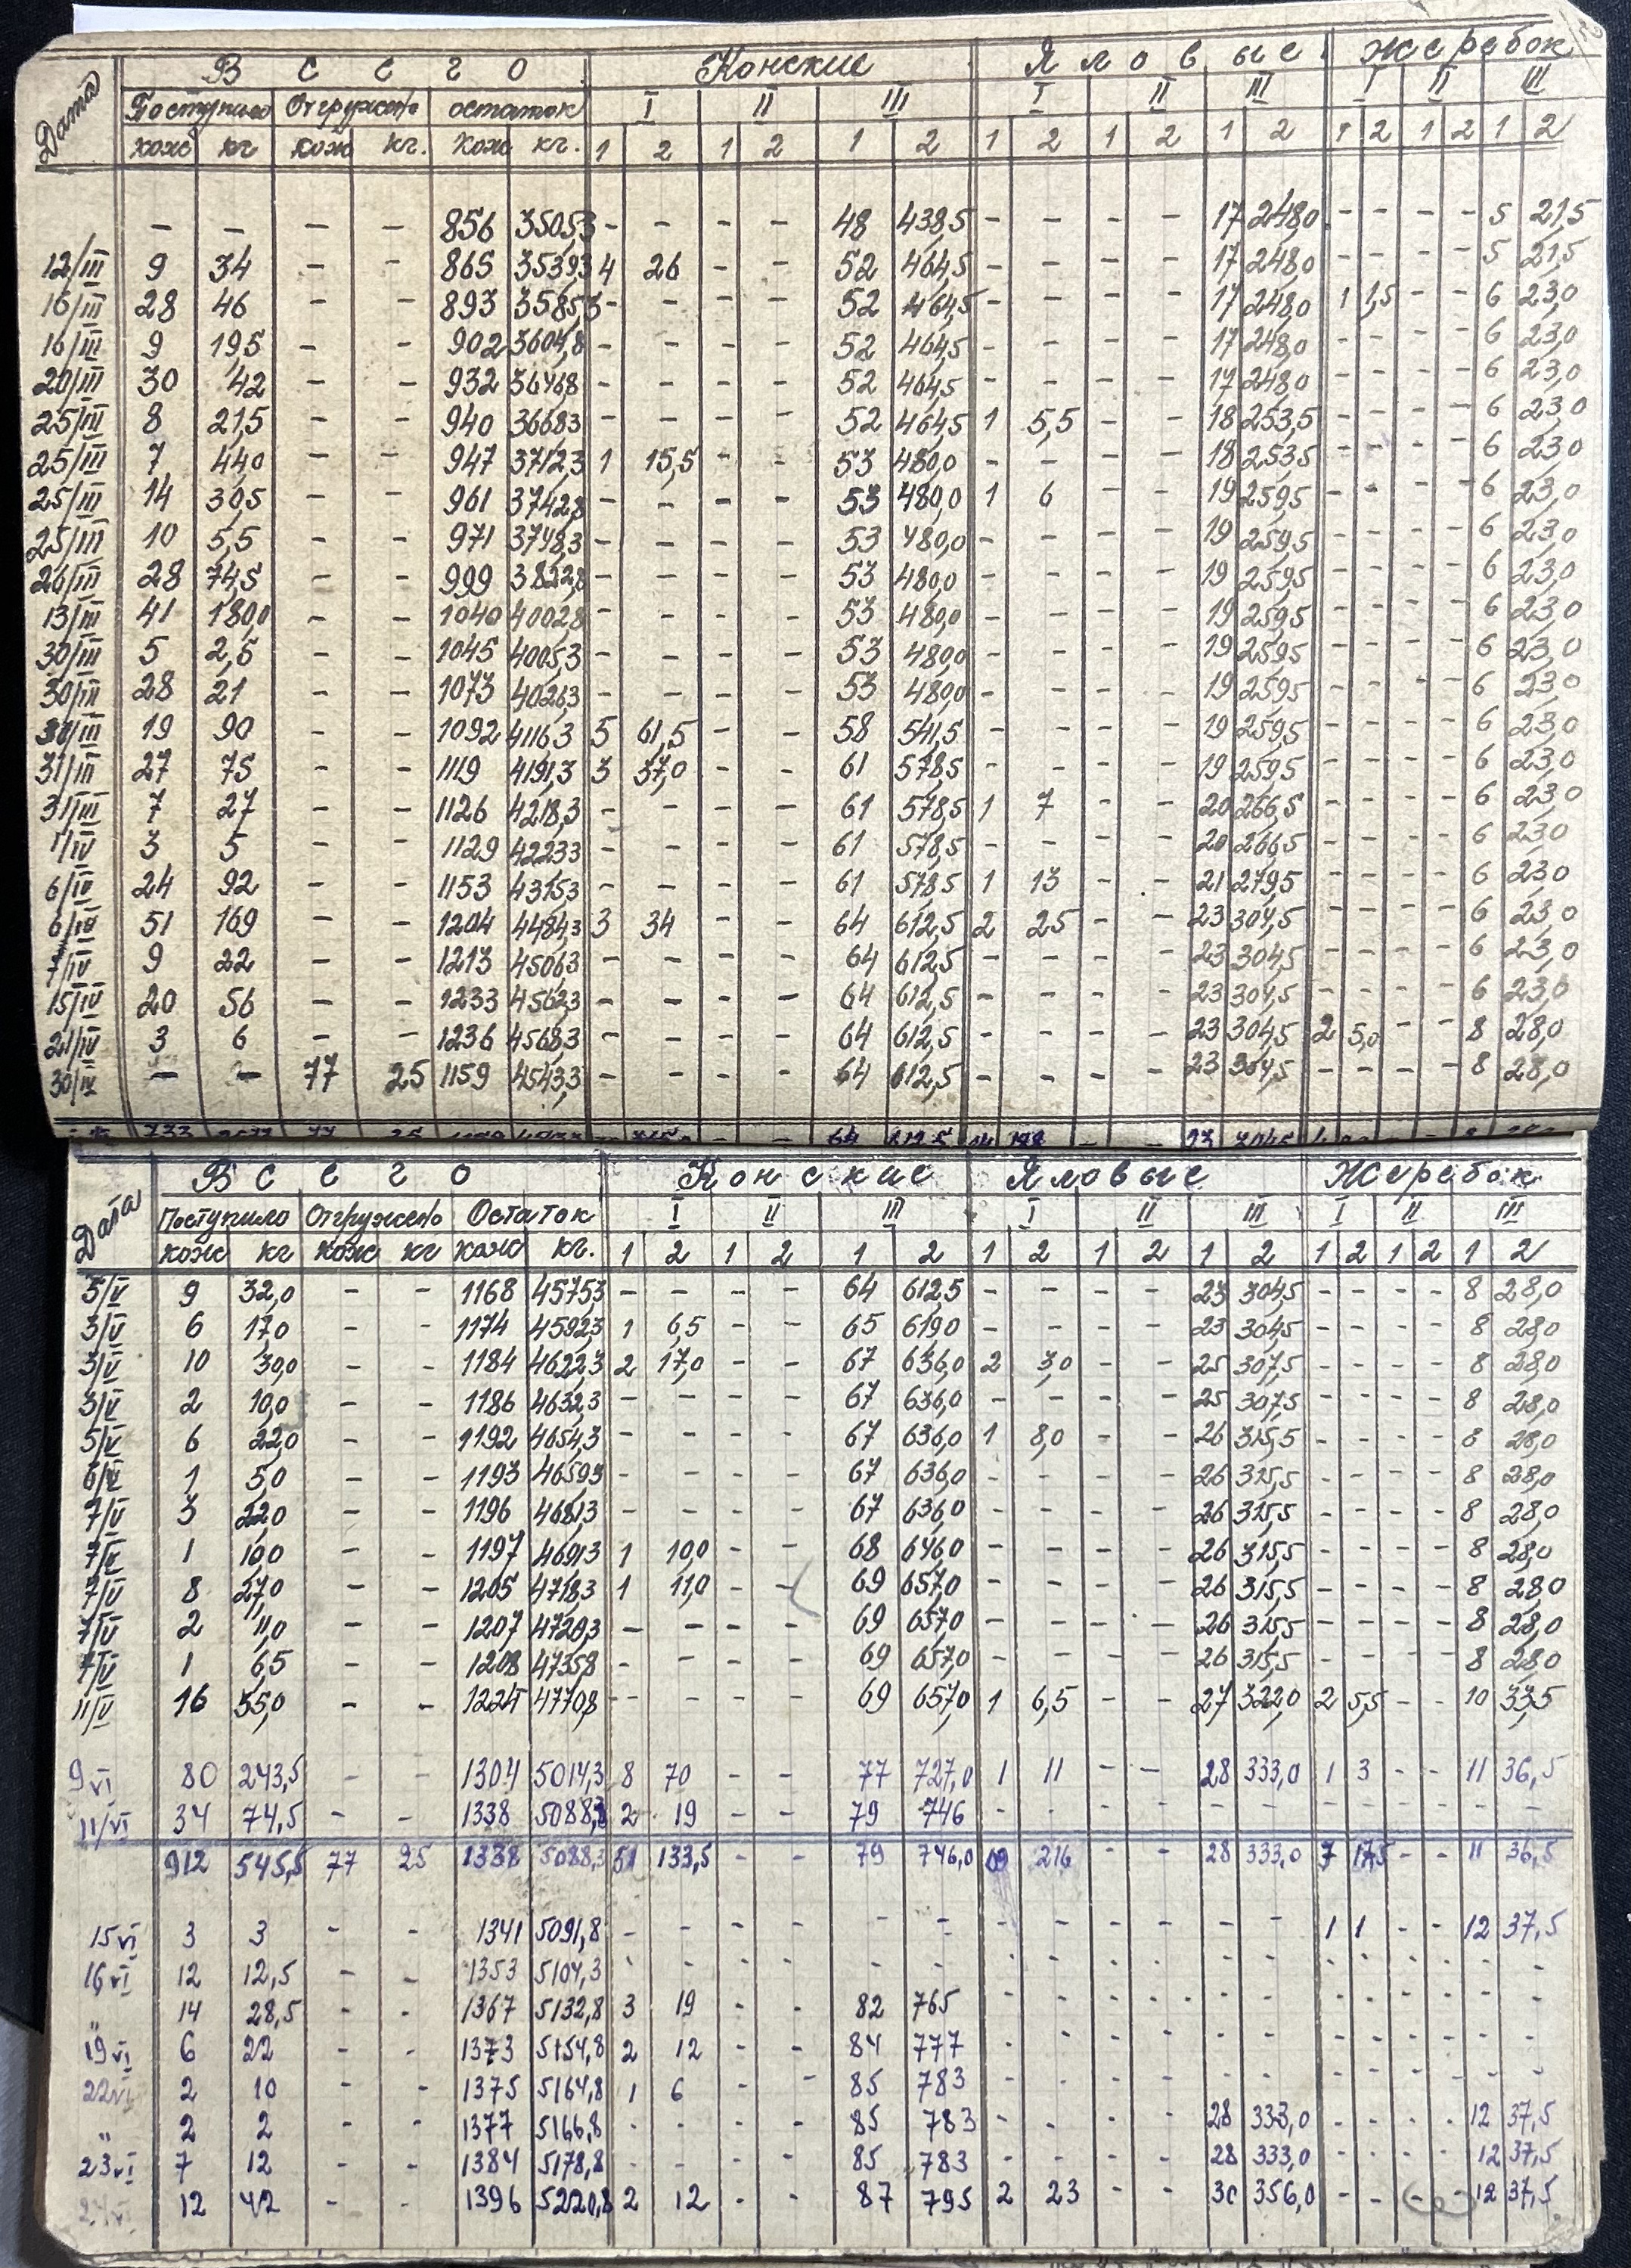 Дата В с е г о Конские Яловые Жеребок
Поступило Отгружено остаток I II III I II III I II III
кож кг кож кг. кож кг. 1 2 1 2 1 2 1 2 1 2 1 2 1 2 1 2 1 2
- - - - 856 3505,3 - - - - 48 438,5 - - - - 17 248,0 - - - - 5 21,5
12/III 9 34 - - 865 3539,3 4 26 - - 52 464,5 - - - - 17 248,0 - - - - 5 21,5
16/III 28 46 - - 893 3585,3 - - - - 52 464,5 - - - - 17 248,0 1 1,5 - - 6 23,0
16/III 9 19,5 - - 902 3604,8 - - - - 52 464,5 - - - - 17 248,0 - - - - 6 23,0
20/III 30 42 - - 932 3646,8 - - - - 52 464,5 - - - - 17 248,0 - - - - 6 23,0
25/III 8 21,5 - - 940 3668,3 - - - - 52 464,5 1 5,5 - - 18 253,5 - - - - 6 23,0
25/III 7 44,0 - - 947 3712,3 1 15,5 - - 53 480,0 - - - - 18 253,5 - - - - 6 23,0
25/III 14 30,5 - - 961 3742,8 - - - - 53 480,0 1 6 - - 19 259,5 - - - - 6 23,0
25/III 10 5,5 - - 971 3748,3 - - - - 53 480,0 - - - - 19 259,5 - - - - 6 23,0
26/III 28 74,5 - - 999 3822,8 - - - - 53 480,0 - - - - 19 259,5 - - - - 6 23,0
13/III 41 180,0 - - 1040 4002,8 - - - - 53 480,0 - - - - 19 259,5 - - - - 6 23,0
30/III 5 2,5 - - 1045 4005,3 - - - - 53 480,0 - - - - 19 259,5 - - - - 6 23,0
30/III 28 21 - - 1073 4026,3 - - - - 53 480,0 - - - - 19 259,5 - - - - 6 23,0
/III 19 90 - - 1092 4116,3 5 61,5 - - 58 541,5 - - - - 19 259,5 - - - - 6 23,0
31/III 27 75 - - 1119 4191,3 3 37,0 - - 61 578,5 - - - - 19 259,5 - - - - 6 23,0
31/III 7 27 - - 1126 4218,3 - - - - 61 578,5 1 7 - - 20 266,5 - - - - 6 23,0
1/IV 3 5 - - 1129 4223,3 - - - - 61 578,5 - - - - 20 266,5 - - - - 6 23,0
6/IV 24 92 - - 1153 4315,3 - - - - 61 578,5 1 13 - - 21 279,5 - - - - 6 23,0
6/IV 51 169 - - 1204 4484,3 3 34 - - 64 612,5 2 25 - - 23 304,5 - - - - 6 23,0
7/IV 9 22 - - 1213 4506,3 - - - - 64 612,5 - - - - 23 304,5 - - - - 6 23,0
15/IV 20 56 - - 1233 4562,3 - - - - 64 612,5 - - - - 23 304,5 - - - - 6 23,0
21/IV 3 6 - - 1236 4568,3 - - - - 64 612,5 - - - - 23 304,5 2 5,0 - - 8 28,0
30/IV - - 77 25 1159 4543,3 - - - - 64 612,5 - - - - 23 304,5 - - - - 8 28,0
733 77 25 64 612,5 23 304,5
Дата В с е г о Конские Яловые Жеребок
Поступило Отгружено Остаток I II III I II III I II III
кож кг кож кг кож кг. 1 2 1 2 1 2 1 2 1 2 1 2 1 2 1 2 1 2
3/V 9 32,0 - - 1168 4575,3 - - - - 64 612,5 - - - - 23 304,5 - - - - 8 28,0
3/V 6 17,0 - - 1174 4592,3 1 6,5 - - 65 619,0 - - - - 23 304,5 - - - - 8 28,0
3/V 10 30,0 - - 1184 4622,3 2 17,0 - - 67 636,0 2 3,0 - - 25 307,5 - - - - 8 28,0
3/V 2 10,0 - - 1186 4632,3 - - - - 67 636,0 - - - - 25 307,5 - - - - 8 28,0
5/V 6 22,0 - - 1192 4654,3 - - - - 67 636,0 1 8,0 - - 26 315,5 - - - - 8 28,0
6/V 1 5,0 - - 1193 4659,3 - - - - 67 636,0 - - - - 26 315,5 - - - - 8 28,0
7/V 3 22,0 - - 1196 4681,3 - - - - 67 636,0 - - - - 26 315,5 - - - - 8 28,0
7/V 1 10,0 - - 1197 4691,3 1 10,0 - - 68 646,0 - - - - 26 315,5 - - - - 8 28,0
7/V 8 27,0 - - 1205 4718,3 1 11,0 - - 69 657,0 - - - - 26 315,5 - - - - 8 28,0
7/V 2 11,0 - - 1207 4729,3 - - - - 69 657,0 - - - - 26 315,5 - - - - 8 28,0
7/V 1 6,5 - - 1208 4735,8 - - - - 69 657,0 - - - - 26 315,5 - - - - 8 28,0
11/V 16 35,0 - - 1224 4770,8 - - - - 69 657,0 1 6,5 - - 27 322,0 2 5,5 - - 10 33,5
9 VI 80 243,5 - - 1304 5014,3 8 70 - - 77 727,0 1 11 - - 28 333,0 1 3 - - 11 36,5
11/VI 34 74,5 - - 1338 5088,8 2 19 - - 79 746 - - - - - - - - - - - -
912 545,5 77 25 1338 5088,3 51 133,5 - - 79 746,0 216 - - 28 333,0 7 17,5 - - 11 36,5
15 VI 3 3 - - 1341 5091,8 - - - - - - - - - - - - 1 1 - - 12 37,5
16 VI 12 12,5 - - 1353 5104,3 - - - - - - - - - - - - - - - - - -
" 14 28,5 - - 1367 5132,8 3 19 - - 82 765 - - - - - - - - - - - -
19 VI 6 22 - - 1373 5154,8 2 12 - - 84 777 - - - - - - - - - - - -
22 VI 2 10 - - 1375 5164,8 1 6 - - 85 783 - - - - - - - - - - - -
" 2 2 - - 1377 5166,8 - - - - 85 783 - - - - 28 333,0 - - - - 12 37,5
23 VI 7 12 - - 1384 5178,8 - - - - 85 783 - - - - 28 333,0 - - - - 12 37,5
24 VI 12 42 - - 1396 5220,8 2 12 - - 87 795 2 23 - - 30 356,0 - - - - 12 37,5